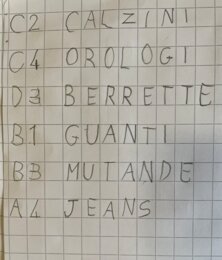 C2 CALZINI
C4 OROLOGI
D3 BERRETTE
B1 GUANTI
B3 MUTANDE
A4 JEANS